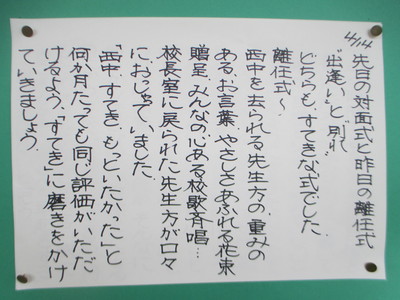 4/14
先日の対面式と昨日の離任式
"出逢い"と"別れ"
どちらも、すてきな式でした。
離任式〜
西中を去られる先生方の、重みの
ある、お言葉、やさしさあふれる花束
贈呈、みんなの心ある校歌斉唱…
校長室に戻られた先生方が口々
に、おっしゃっていました。
「西中、すてき、もっといたかった」と
何か月たっても同じ評価がいただ
けるよう、「すてき」に磨きをかけ
ていきましょう。